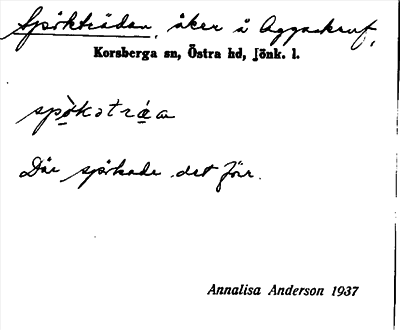 Spökträdan, åker å Aggaskruf,
Korsberga sn, Östra hd, Jönk. l.
spò̱kətrá̱a
Där spökade det förr.
Annalisa Anderson 1937